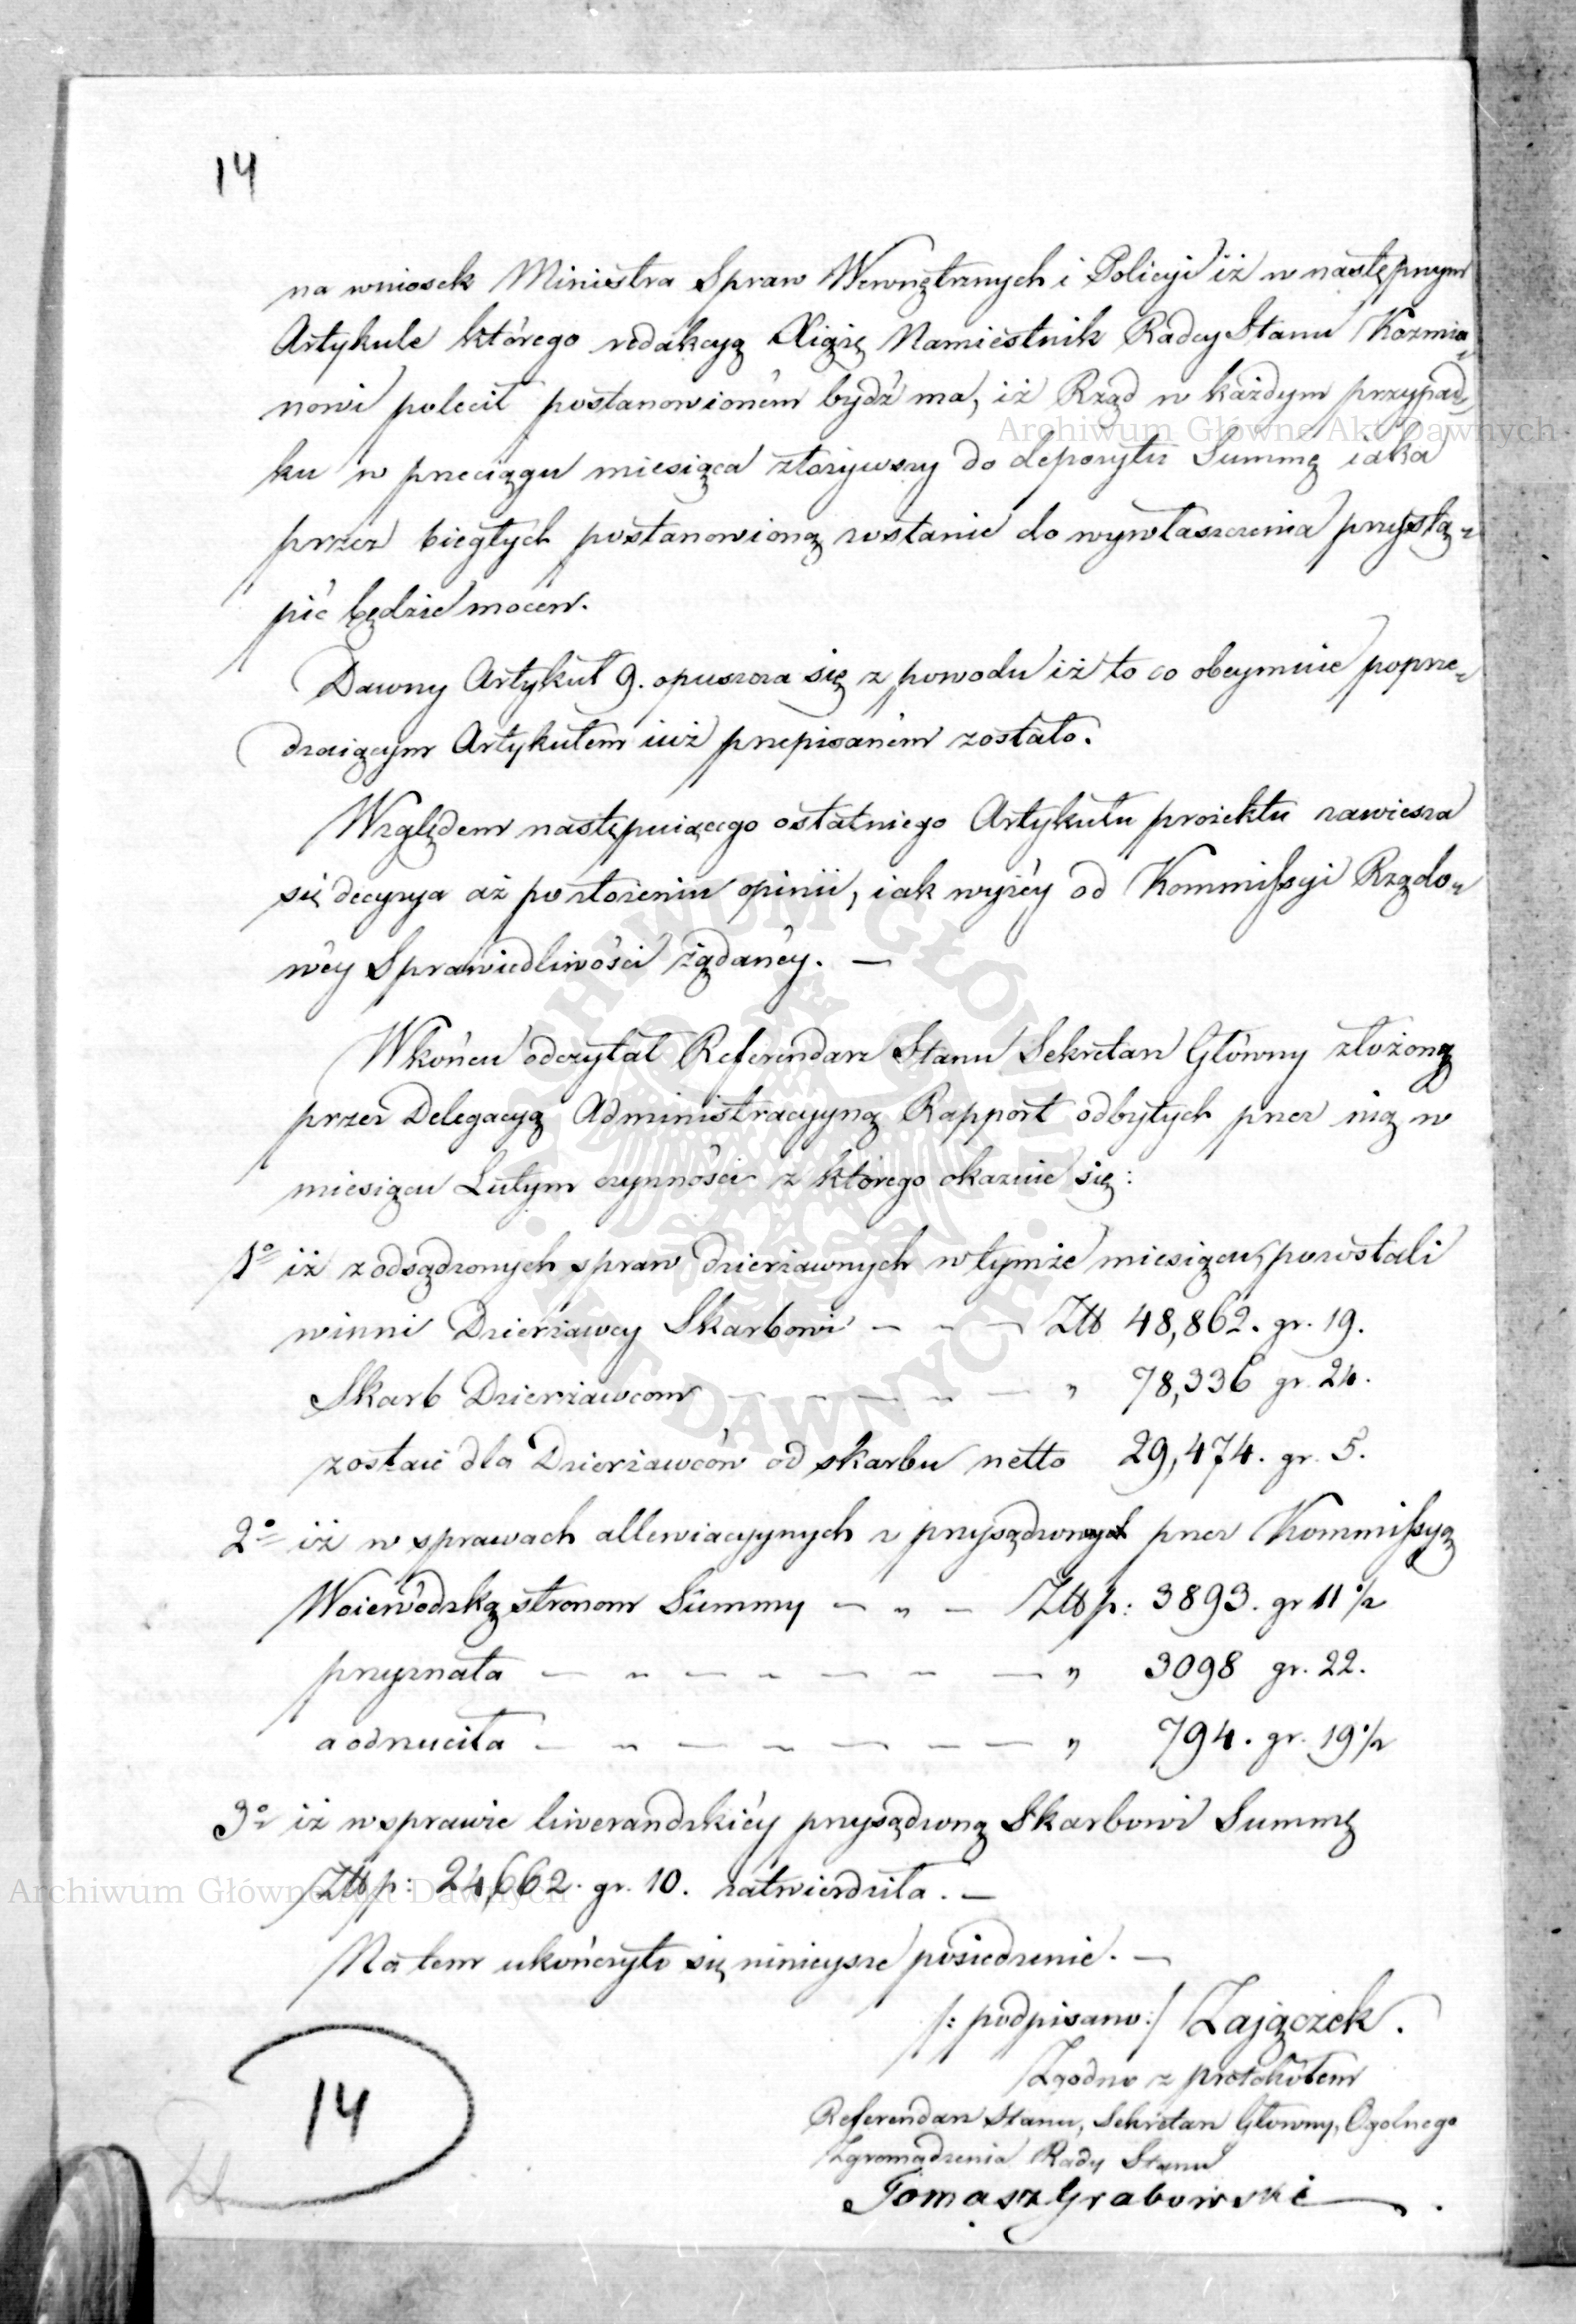 14
na wniosek Ministra Spraw Wewnętrznych i Policyi iż w następnym
Artykule którego redakcyą Xiążę Namiestnik Radcy Stanu Kozmia-
nowi polecił postanowioném bydź ma, iż Rząd w każdym przypad-
ku w przeciągu miesiąca złożywszy do depozytu Summę iaka
przez biegłych postanowioną zostanie do wywłaszczenia przystą-
pić będzie mocen.
Dawny Artykuł 9. opuszcza się z powodu iż to co obeymuie poprze-
dzaiącym Artykułem iuż przepisaném zostało.
Względem następuiącego ostatniego Artykułu proiektu zawiesza
się decyzya aż po złożeniu opinii, iak wyżéy od Kommissyi Rządo-
wéy Sprawiedliwości żądanéy. —
W końcu odczytał Referendarz Stanu Sekretarz Główny złożoną
przez Delegacyą Administracyyną Rapport odbytych przez nią w
miesiącu Lutym czynności z którego okazuie się:
1o iż z odsądzonych spraw dzierżawnych w tymże miesiącu, pozostali
winni Dzierżawcy Skarbowi — - — Złł 48,862. gr. 19.
Skarb Dzierżawcom — - — - — " 78,336 gr. 24.
zostaie dla Dzierżawców od skarbu netto 29,474. gr. 5.
2o iż w sprawach allewiacyynych z przysądzonych przez Kommissyą
Woiewódzką stronom Summy — " — Złł p: 3893. gr 11 1/2
przyznała — - — - — - — " 3098 gr. 22.
a odrzuciła — - — - — - — " 794. gr. 19 1/2
3o iż w sprawie liwerandzkiéy przysądzoną Skarbowi Summę
Złł p: 24,662. gr. 10. zatwierdziła. —
Na tem ukończyło się ninieysze posiedzenie. —
/: podpisano :/ Zajączek.
Zgodno z protokółem
Referendarz Stanu, Sekretarz Główny, Ogolnego
Zgromadzenia Rady Stanu
Tomasz Grabowski
14
Archiwum Główne Akt Dawnych
Archiwum Główne Akt Dawnych
ARCHIWUM GŁÓWNE AKT DAWNYCH